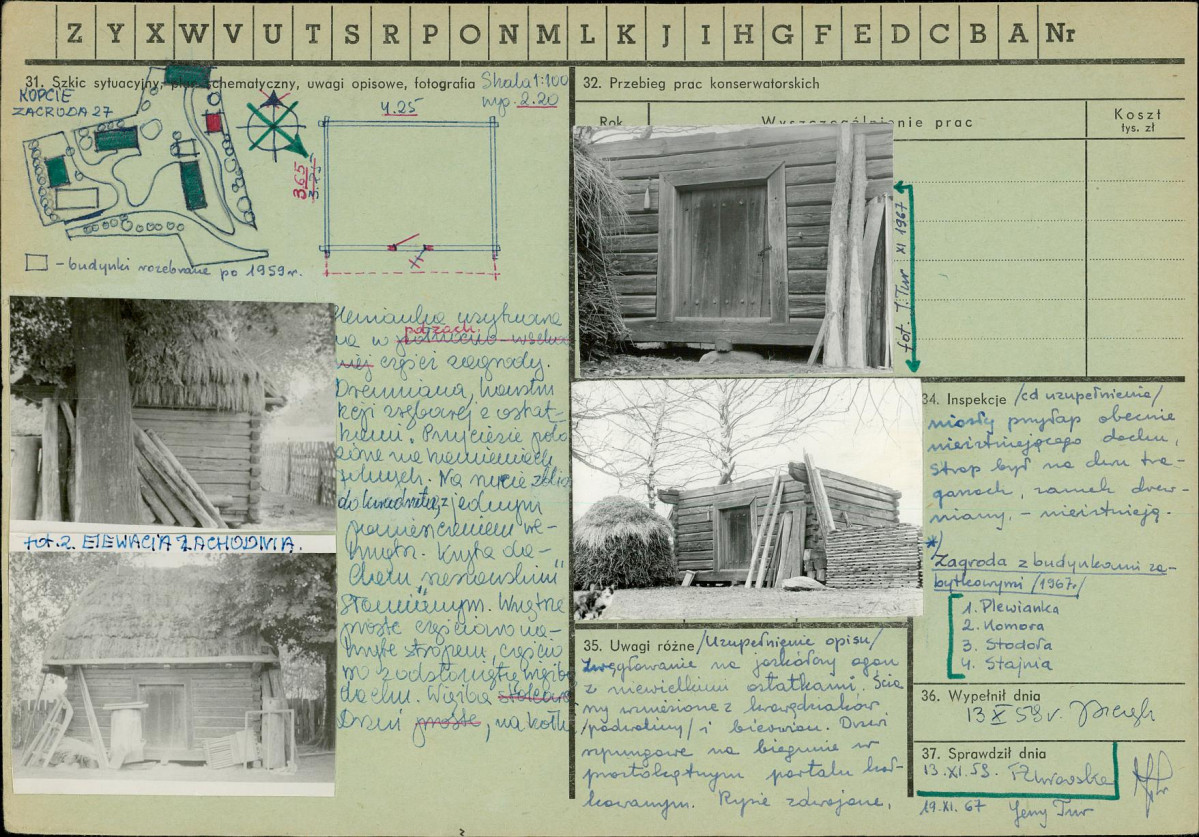 Z Y X W V U T S R P O N M L K J I H G F E D C B A Nr
31. Szkic sytuacyjny, plan schematyczny, uwagi opisowe, fotografia
Skala 1:100
wys. 2.20
KOPCIE
ZAGRODA 27
4.25
3.65
- budynki rozebrane po 1959 r.
usytuowana
na w
pd. zach.
części zagrody.
Drewniana, konstru
kcji zrębowej z ostat-
kami. Przyciesie poło
żone na kamieniach
polnych. Na rzucie zbliż.
do kwadratu, z jednym
pomieszczeniem we-
wnątrz. Kryta da-
chem
słomianym. Wnętrze
proste częściowo na-
kryte stropem, częścio
wo z odsłoniętą więźbą
dachu. Więźba
Drzwi proste, na
fot. 2. ELEWACJA ZACHODNIA.
32. Przebieg prac konserwatorskich
Rok
Wyszczególnienie prac
Koszt
tys. zł
fot. J. Tur XI 1967
34. Inspekcje /cd uzupełnienia/
niosły przyłap obecnie
nieistniejącego dachu.
Strop był na dwu tra-
ganach, zamek drew-
niany, - nieistnieją.
*/
Zagroda z budynkami za-
bytkowymi /1967r/
1. Plewianka
2. Komora
3. Stodoła
4. Stajnia
35. Uwagi różne /Uzupełnienie opisu/
Zwęgłowanie na jaskółczy ogon
z niewielkimi ostatkami. Ścia
ny wzniesione z kwadraków
/podwaliny/ i bierwion. Drzwi
szpungowe na biegunie w
prostokątnym portalu koł-
kowanym. Rysie zdwojone,
36. Wypełnił dnia
13 X 59 r.
37. Sprawdził dnia
13.XI.59.
19.XI.67 Jerzy Tur